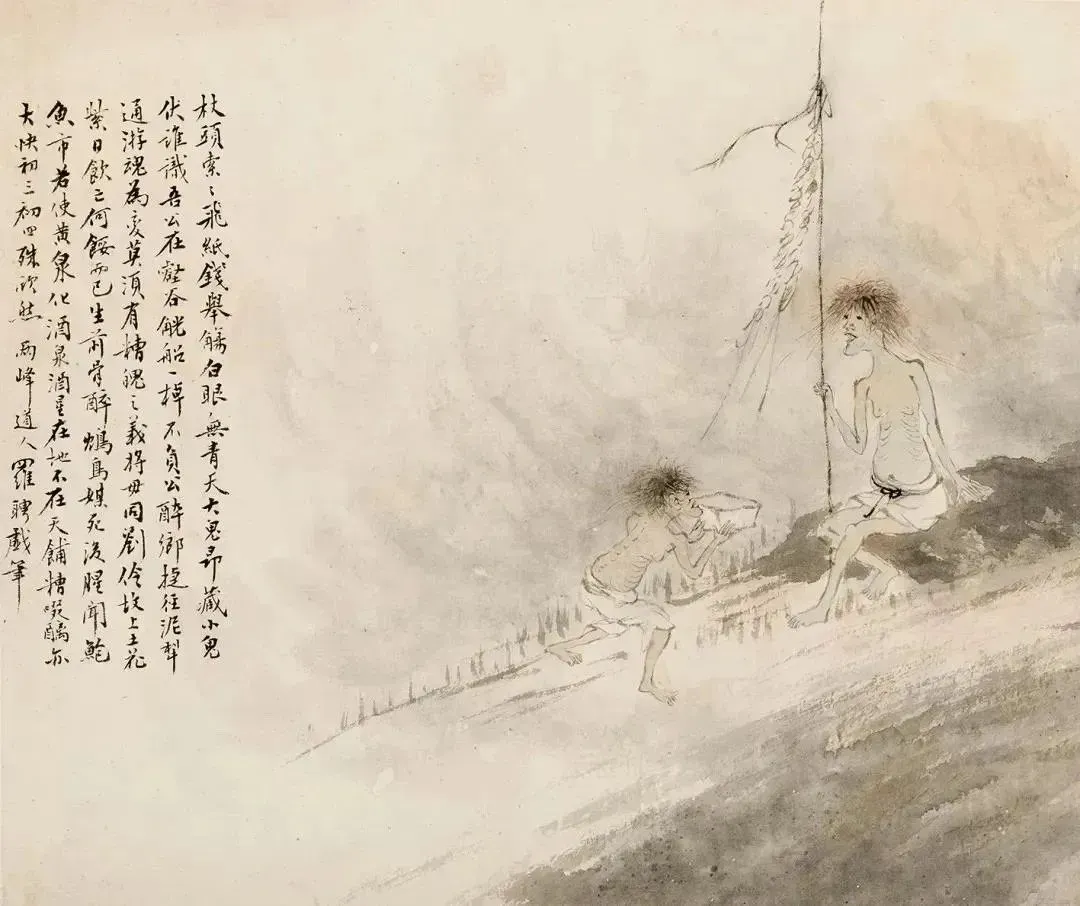 杖頭索〻飛紙錢舉觴白眼無青天大鬼昂藏小鬼
伏誰識吾公在壑谷觥船一棹不負公醉鄉捷徑泥犁
通游魂為変莫須有糟魄之義將毋同劉伶坟上土花
紫日飲亡何餒而已生前骨醉鴆鳥媒死後腥聞鮑
魚市若使黃泉化酒泉酒星在地不在天餔糟啜醨亦
大快初三初四殊欣然 兩峰道人羅聘戲筆